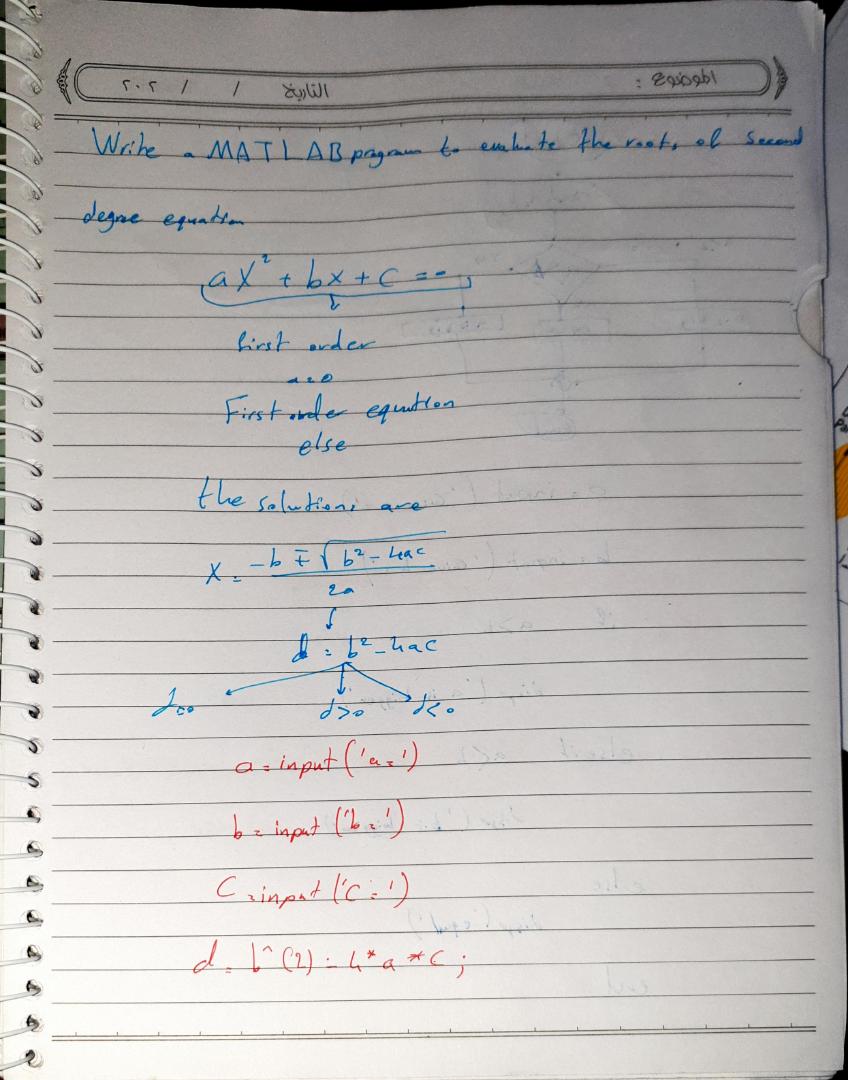 الموضوع : التاريخ / / ٢٠٢
Write a MATLAB program to evaluate the roots of second
degree equation
aX² + bx + C = 0
first order
a=0
First order equation
else
the solutions are
X = -b ∓ √b² - 4ac
2a
d = b² - 4ac
d=0 d>0 d<0
a = input ('a=')
b = input ('b=')
C = input ('C=')
d = b^(2) - 4*a*c;